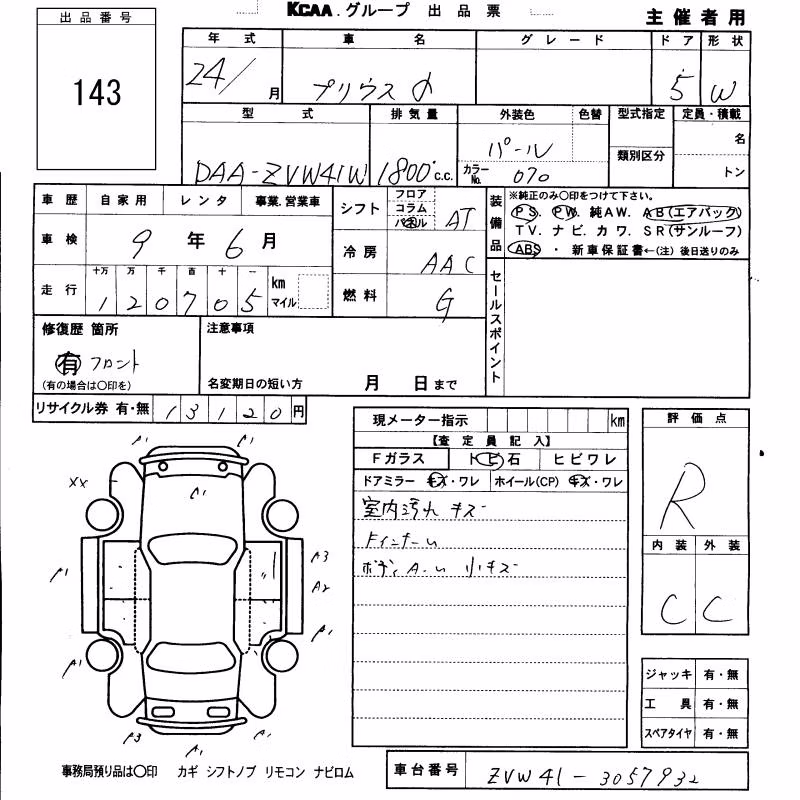 KCAA.グループ 出品票
主催者用
出品番号
143
年式 車名 グレード ドア 形状
24/ 月 プリウスα 5 W
型式 排気量 外装色 色替 型式指定 定員・積載
DAA-ZVW41W 1800 c.c. パール 名
類別区分
カラーNo. 070 トン
車歴 自家用 レンタ 事業.営業車
車検 9年6月
走行 十万 万 千 百 十 一
120705 km マイル
シフト フロア コラム パネル AT
冷房 AAC
燃料 G
装備品 ※純正のみ○印をつけて下さい。
PS. PW. 純AW. AB(エアバック)
TV. ナビ. カワ. SR(サンルーフ)
ABS ・ 新車保証書←(注) 後日送りのみ
セールスポイント
修復歴 箇所
有 フロント
(有の場合は○印を)
注意事項
名変期日の短い方 月 日まで
リサイクル券 有・無 13120円
現メーター指示 km
【査定員記入】
Fガラス トビ石 ヒビワレ
ドアミラー キズ・ワレ ホイール(CP) キズ・ワレ
室内汚れ キズ
ボディA-U 小キズ
評価点
R
内装 外装
C C
A1 A1
XX A1
A1 A3
A2
A1 A1
A3 A1 A1
ジャッキ 有・無
工具 有・無
スペアタイヤ 有・無
事務局預り品は○印 カギ シフトノブ リモコン ナビロム
車台番号 ZVW41-3057932